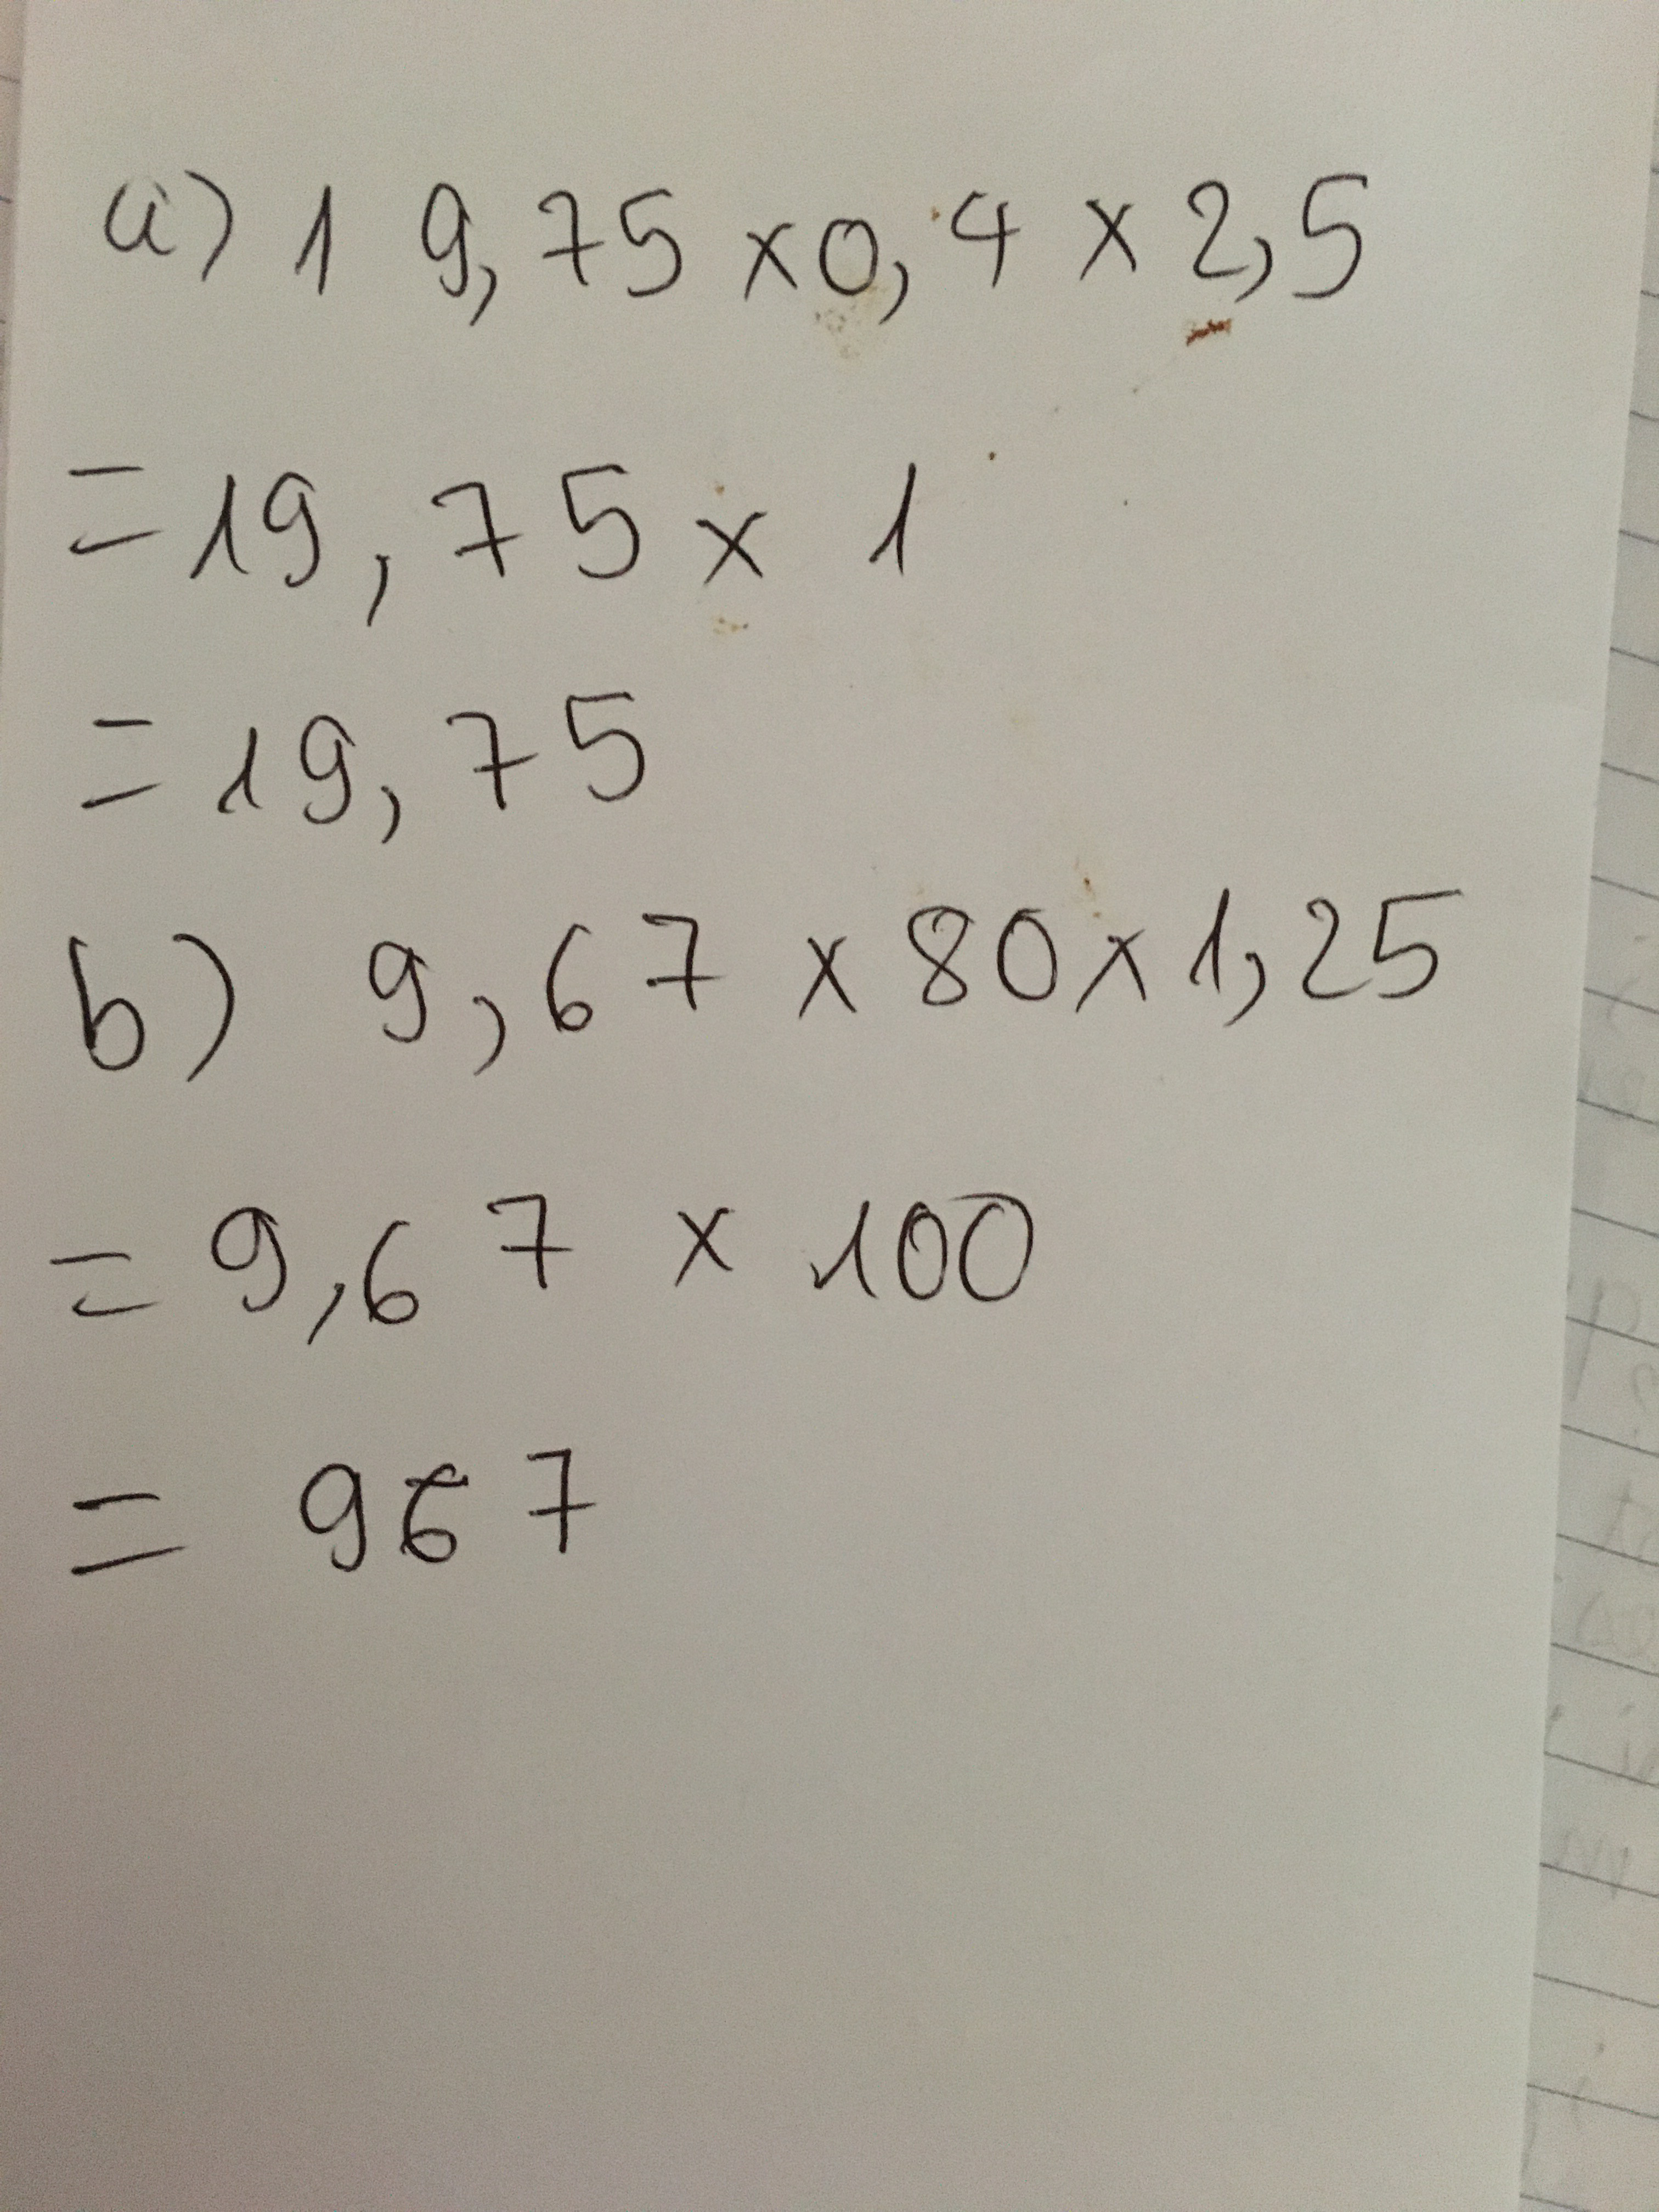 a) 19,75 x 0,4 x 2,5
= 19,75 x 1
= 19,75
b) 9,67 x 80 x 1,25
= 9,67 x 100
= 967